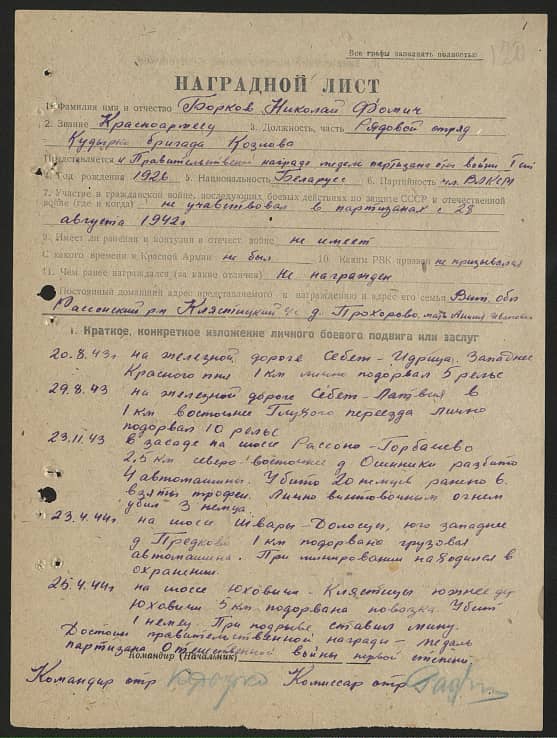 1
Все графы заполнять полностью
120
НАГРАДНОЙ ЛИСТ
1. Фамилия имя и отчество Борков Николай Фомич
2. Звание Красноармеец 3. Должность, часть Рядовой отряд
бригада Козлова
Представляется к Правительственной награде медаль партизана отеч войны I ст
4. Год рождения 1926. 5. Национальность Беларусс 6. Партийность чл. ВЛКСМ
7. Участие в гражданской войне, последующих боевых действиях по защите СССР и отечественной
войне (где и когда) не участвовал в партизанах с 28
августа 1942г
8. Имеет ли ранения и контузии в отечест. войне не имеет
С какого времени в Красной Армии не был 10. Каким РВК призван не призывался
11. Чем ранее награждался (за какие отличия) Не награжден
Постоянный домашний адрес представляемого к награждению и адрес его семьи Вит. обл
Рассонский р-н Клястицкий с д. Прохорово, мать
I. Краткое, конкретное изложение личного боевого подвига или заслуг
20.8.43г на железной дороге Себеж-Идрица. Западнее
Красного пня 1 км лично подорвал 5 рельс
29.8.43 на железной дороге Себеж-Латвия в
1 км восточнее Глухого переезда лично
подорвал 10 рельс
23.11.43 в засаде на шоссе Рассоно-Горбачево
2,5 км северо-восточнее д Ошники разбито
4 автомашины. Убито 20 немцев ранено 6.
взяты трофеи. Лично винтовочным огнем
убил 3 немца.
23.4.44г на шоссе Швары-Долосцы, юго западнее
д Предково 1 км подорвана грузовая
автомашина. При минировании находился в
охранении.
25.4.44г на шоссе Юховичи-Клястицы южнее д
Юховичи 5 км подорвана повозка. Убит
1 немец. При подрыве ставил мину.
Достоин правительственной награды - медаль
партизана Отечественной войны первой степени.
Командир (Начальник)
Командир отр Комиссар отр